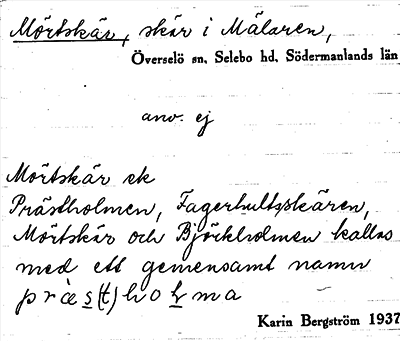 Mörtskär, skär i Mälaren,
Överselö sn, Selebo hd, Södermanlands län
anv. ej
Mörtskär ek
Prästholmen, Fagerhultsskären,
Mörtskär och Björkholmen kallas
med ett gemensamt namn
præs(t)hoḷma
Karin Bergström 1937